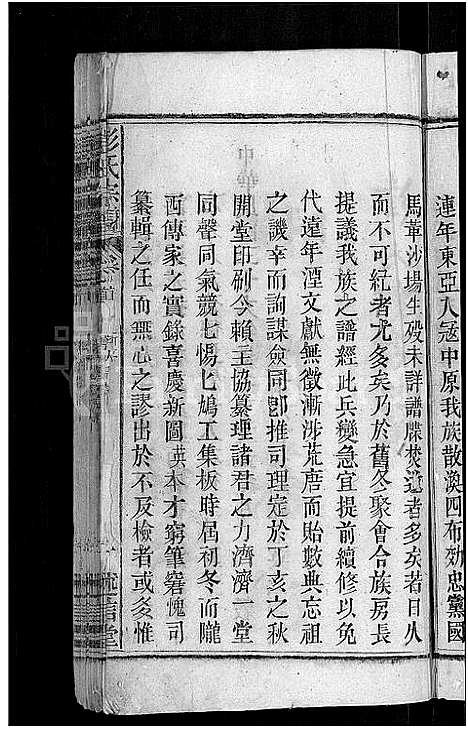 連年東亞人寇中原我族散渙四布効忠黨國
馬革沙場生歿未詳譜牒焚燬者多矣若日久
而不可紀者尤多矣乃於舊冬聚會合族房長
提議我族之譜經此兵變急宜提前續修以免
代遠年湮文獻無徵漸涉荒唐而貽數典忘祖
之譏幸而詢謀僉同卽推司理定於丁亥之秋
開堂印刷今賴主協纂理諸君之力濟濟一堂
同聲同氣競七惕七鳩工集板時屆初冬而隴
西傳家之實錄喜慶新圖英本才窮筆窘愧司
纂輯之任而無心之謬出於不及檢者或多惟
彭氏宗譜
卷首
述信堂